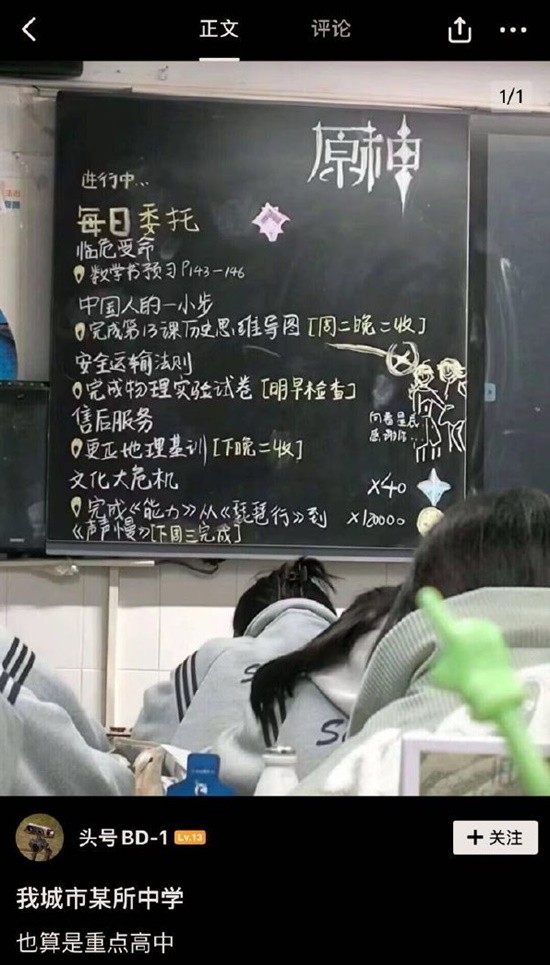 正文
评论
1/1
原神
进行中...
每日委托
临危受命
数学书预习P143-146
中国人的一小步
完成第13课历史思维导图[周二晚二收]
安全运输法则
完成物理实验试卷[明早检查]
售后服务
更正地理基训[下晚二收]
文化大危机
×40
完成《能力》从《琵琶行》到
《声声慢》[下周三完成]
×120000
头号BD-1
Lv.13
+ 关注
我城市某所中学
也算是重点高中